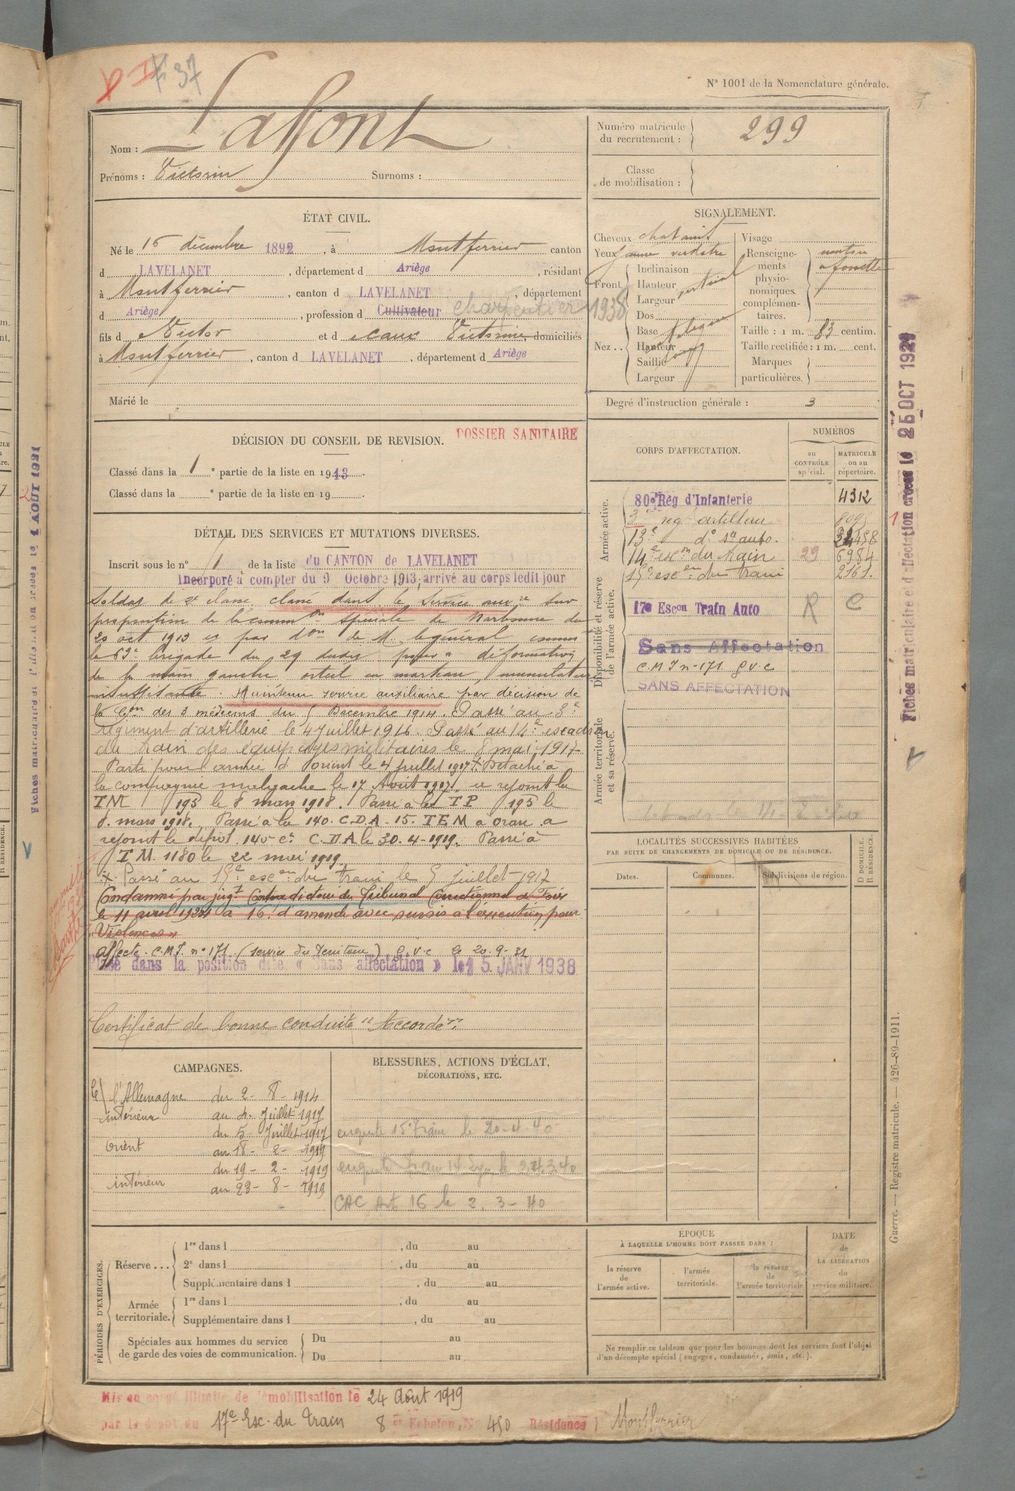 F 37
Nº 1001 de la Nomenclature générale.
Nom : Laffont
Prénoms : Victorin Surnoms :
Numéro matricule du recrutement : 299
Classe de mobilisation :
ÉTAT CIVIL.
Né le 16 décembre 1892, à Montferrier canton
d LAVELANET, département d Ariège, résidant
à Montferrier, canton d LAVELANET, département
d Ariège, profession d Cultivateur charpentier 1938
fils d Victor et d eaux Victorine domiciliés
à Montferrier, canton d LAVELANET, département d Ariège
Marié le
SIGNALEMENT.
Cheveux chatains Visage
Yeux jaune verdâtre
Front Inclinaison Hauteur Largeur vertical
Nez Dos Base Hauteur Saillie Largeur
Renseignements physionomiques complémentaires. menton à fossette
Taille : 1 m. 83 centim.
Taille rectifiée : 1 m. cent.
Marques particulières.
Degré d'instruction générale : 3
DÉCISION DU CONSEIL DE RÉVISION. DOSSIER SANITAIRE
Classé dans la 1e partie de la liste en 1913.
Classé dans la e partie de la liste en 19
DÉTAIL DES SERVICES ET MUTATIONS DIVERSES.
Inscrit sous le nº 1 de la liste du CANTON de LAVELANET
Incorporé à compter du 9 Octobre 1913, arrivé au corps ledit jour
Soldat de 2e classe, classé dans le Service auxre sur
proposition de la common spéciale de Narbonne du
20 oct 1913 et par don de M. le général comm
la 63e brigade du 29 dudit pour " déformation
de la main gauche, orteil en marteau,
insuffisante. Maintenu service auxiliaire par décision de
la Con des 3 médecins du 5 Décembre 1914. Passé au 3e
Régiment d'artillerie le 4 juillet 1916. Passé au 14e escadron
du train des équipages militaires le 8 mai 1917
Parti pour armée d'Orient le 4 juillet 1917. Détaché à
la compagnie malgache le 17 Août 1917. a rejoint la
TM 195 le 8 mars 1918. Passé à la TP 195 le
8 mars 1918. Passé à la 140. C.D.A - 15. TEM à oran, a
rejoint le dépôt 140e Cie C.D.A le 30-4-1919. Passé à
T.M. 1180 le 22 mai 1919
x Passé au 15e escon du train le 5 juillet 1917
Condamné par jugt contradictoire du Tribunal Correctionnel de Foix
le 11 avril 1924 à 16f d'amende avec sursis à l'exécution pour
Violences
Affecté C.M.I. nº 171 (service du Territoire) G.V.C le 20-9-32
Placé dans la position dite « Sans affectation » le 15 JANV 1938
Certificat de bonne conduite "Accordé"
CORPS D'AFFECTATION.
NUMÉROS
AU CONTRÔLE spécial.
MATRICULE ou au répertoire.
Armée active.
80e Rég d'Infanterie 4312
3e rég. artillerie
13e do sn auto.
14e escon du train 29 6984
15e escon du train 2161.
Disponibilité et réserve de l'armée active.
17e Escon Train Auto R C
Sans Affectation
C.M.I nº 171 G.V.C
SANS AFFECTATION
Armée territoriale et sa réserve.
LOCALITÉS SUCCESSIVES HABITÉES
PAR SUITE DE CHANGEMENTS DE DOMICILE OU DE RÉSIDENCE.
Dates. Communes. Subdivisions de région.
D DOMICILE. R RÉSIDENCE.
CAMPAGNES.
C/ l'Allemagne du 2-8-1914
intérieur au 4 Juillet 1917
du 5 Juillet 1917
orient au 18-2-1919
du 19-2-1919
intérieur au 23-8-1919
BLESSURES, ACTIONS D'ÉCLAT,
DÉCORATIONS, ETC.
enquete 15e train le 20-4-40
CAC Art 16 le 2-3-40
PÉRIODES D'EXERCICES.
Réserve...
1re dans l , du au
2e dans l , du au
Supplémentaire dans l , du au
Armée territoriale.
1re dans l , du au
Supplémentaire dans l , du au
Spéciales aux hommes du service de garde des voies de communication.
Du au
Du au
ÉPOQUE
À LAQUELLE L'HOMME DOIT PASSER DANS :
la réserve de l'armée active.
l'armée territoriale.
la réserve de l'armée territoriale
DATE de LA LIBÉRATION du service militaire.
Ne remplir ce tableau que pour les hommes dont les services font l'objet
d'un décompte spécial (engagés, condamnés, omis, etc.).
Mis en congé illimité de démobilisation le 24 Août 1919
par le dépôt du 17e Esc. du Train 8e Echelon, Nº 450 Résidence : Montferrier
Fiches matriculaire et d'affectation créées le 25 OCT 1929
Guerre. — Registre matricule. — 426-89-1911.